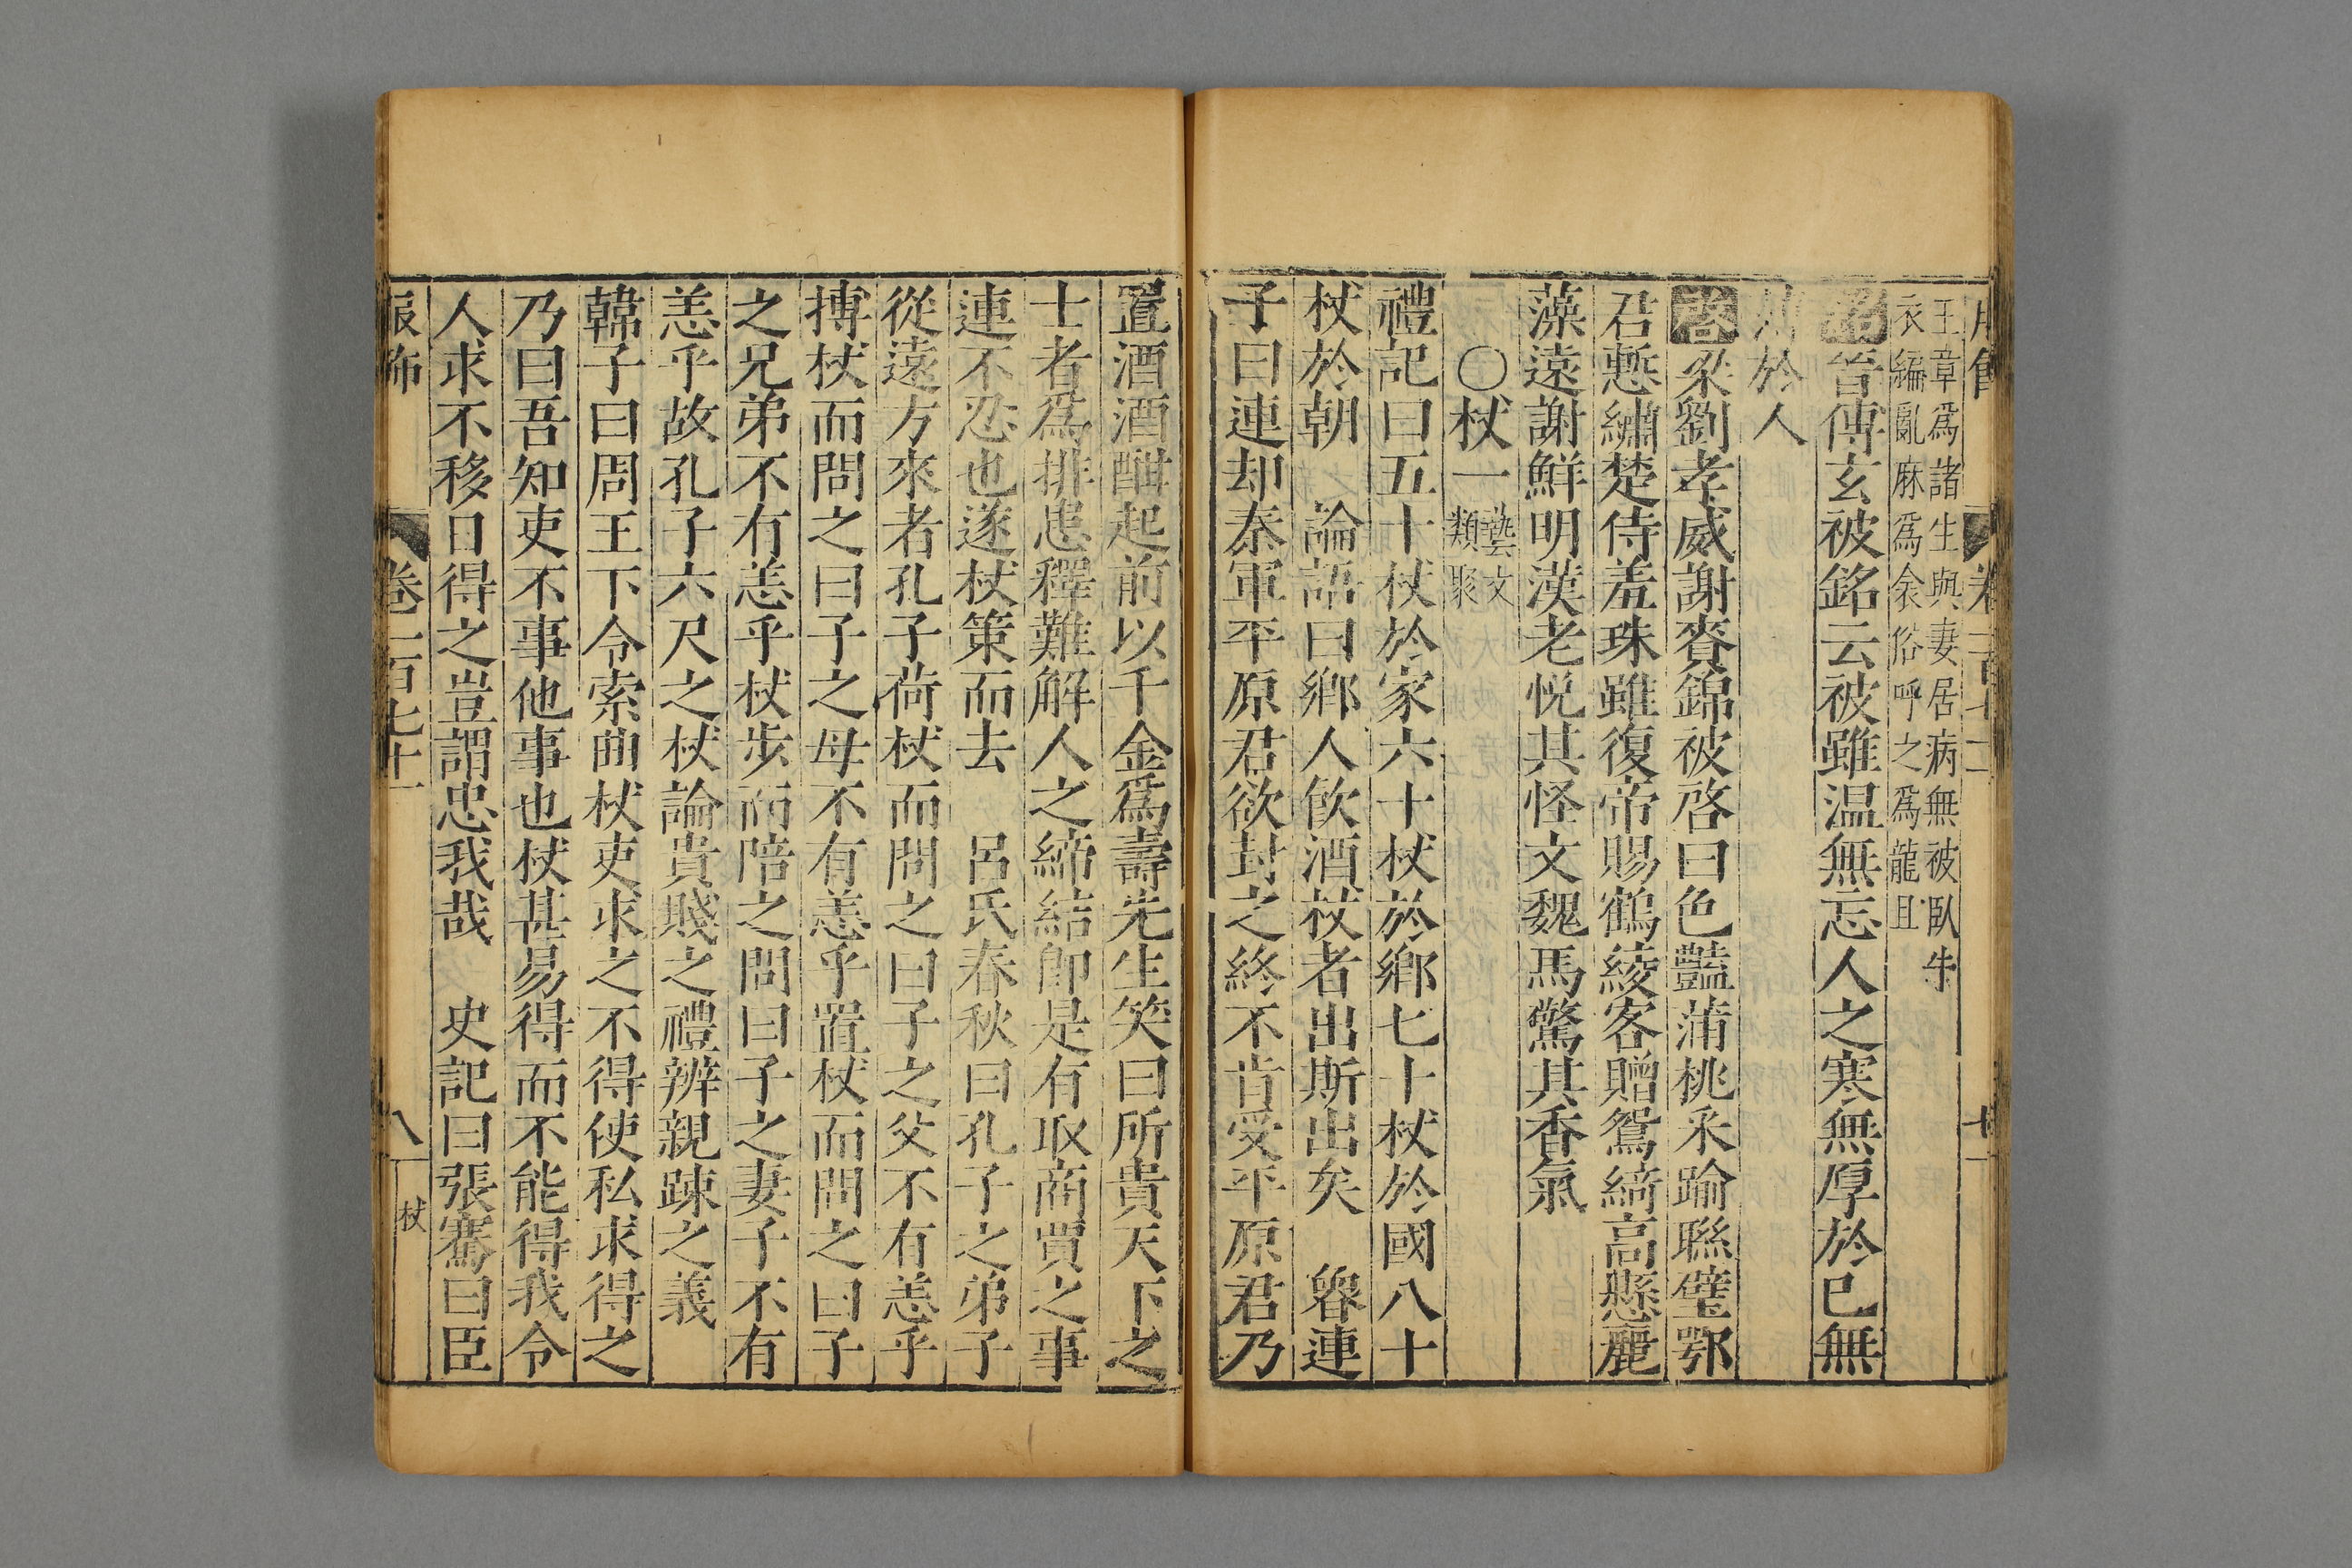 王章爲諸生與妻居病無被臥牛
衣編亂麻爲衾俗呼之爲龍且
銘晉傅玄被銘云被雖温無忘人之寒無厚於已無
於人
啓梁劉孝威謝賚錦被啓曰色豔蒲桃采踰聯璧鄂
君慙繡楚侍羞珠雖復帝賜鶴綾客贈鴛綺高懸麗
藻遠謝鮮明漢老悅其怪文魏馬驚其香氣
〇杖一 藝文類聚
禮記曰五十杖於家六十杖於鄉七十杖於國八十
杖於朝 論語曰鄉人飲酒杖者出斯出矣 魯連
子曰連却秦軍平原君欲封之終不肯受平原君乃
置酒酒酣起前以千金爲壽先生笑曰所貴天下之
士者爲排患釋難解人之締結卽是有取商賈之事
連不忍也遂杖策而去 呂氏春秋曰孔子之弟子
從遠方來者孔子荷杖而問之曰子之父不有恙乎
搏杖而問之曰子之母不有恙乎置杖而問之曰子
之兄弟不有恙乎杖步而陪之問曰子之妻子不有
恙乎故孔子六尺之杖論貴賤之禮辨親踈之義
韓子曰周王下令索曲杖吏求之不得使私求得之
乃曰吾知吏不事他事也杖甚易得而不能得我令
人求不移日得之豈謂忠我哉 史記曰張騫曰臣
服飾 卷二百七十一 八 杖